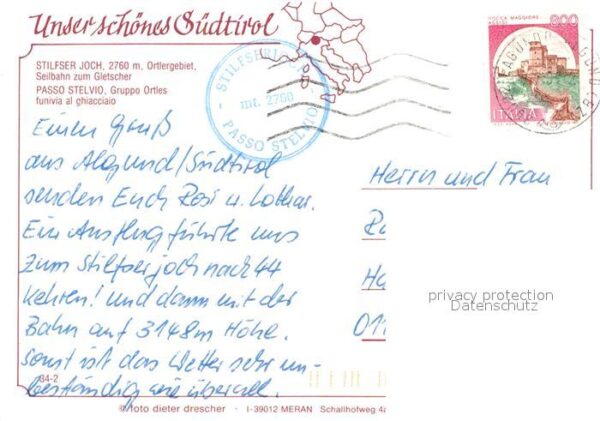 Unser schönes Südtirol
STILFSER JOCH, 2760 m, Ortlergebiet,
Seilbahn zum Gletscher
PASSO STELVIO, Gruppo Ortles
funivia al ghiacciaio
STILFSERJOCH
mt. 2760
PASSO STELVIO
ROCCA MAGGIORE
800
ITALIA
Einen Gruß
aus Algund/Südtirol
senden Euch Rosi u. Lothar.
Ein Ausflug führte uns
zum Stilfserjoch nach 44
Kehren! und dann mit der
Bahn auf 3148m Höhe.
Sonst ist das Wetter sehr un-
beständig wie überall.
Herrn und Frau
Ha
011
privacy protection
Datenschutz
84-2
© foto dieter drescher · I-39012 MERAN Schallhofweg 4a